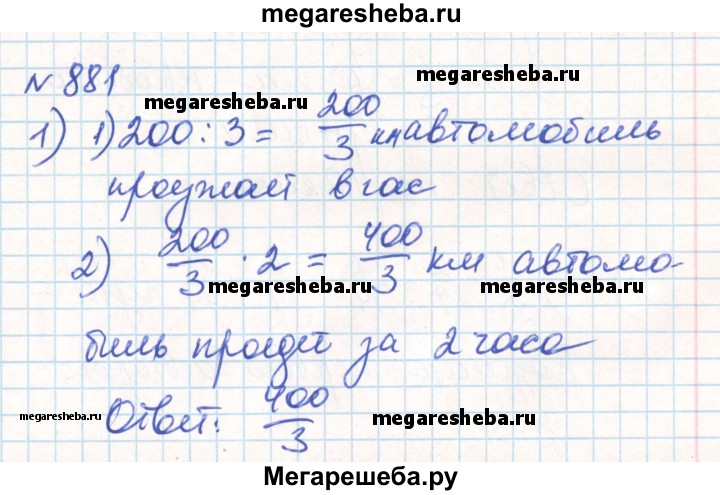 megaresheba.ru
N 881
megaresheba.ru
megaresheba.ru
1) 1) 200 : 3 = 200/3 км автомобиль
проезжает в час
2) 200/3 · 2 = 400/3 км автомо-
megaresheba.ru
megaresheba.ru
биль проедет за 2 часа
megaresheba.ru
Ответ: 400/3
megaresheba.ru
Мегарешеба.ру